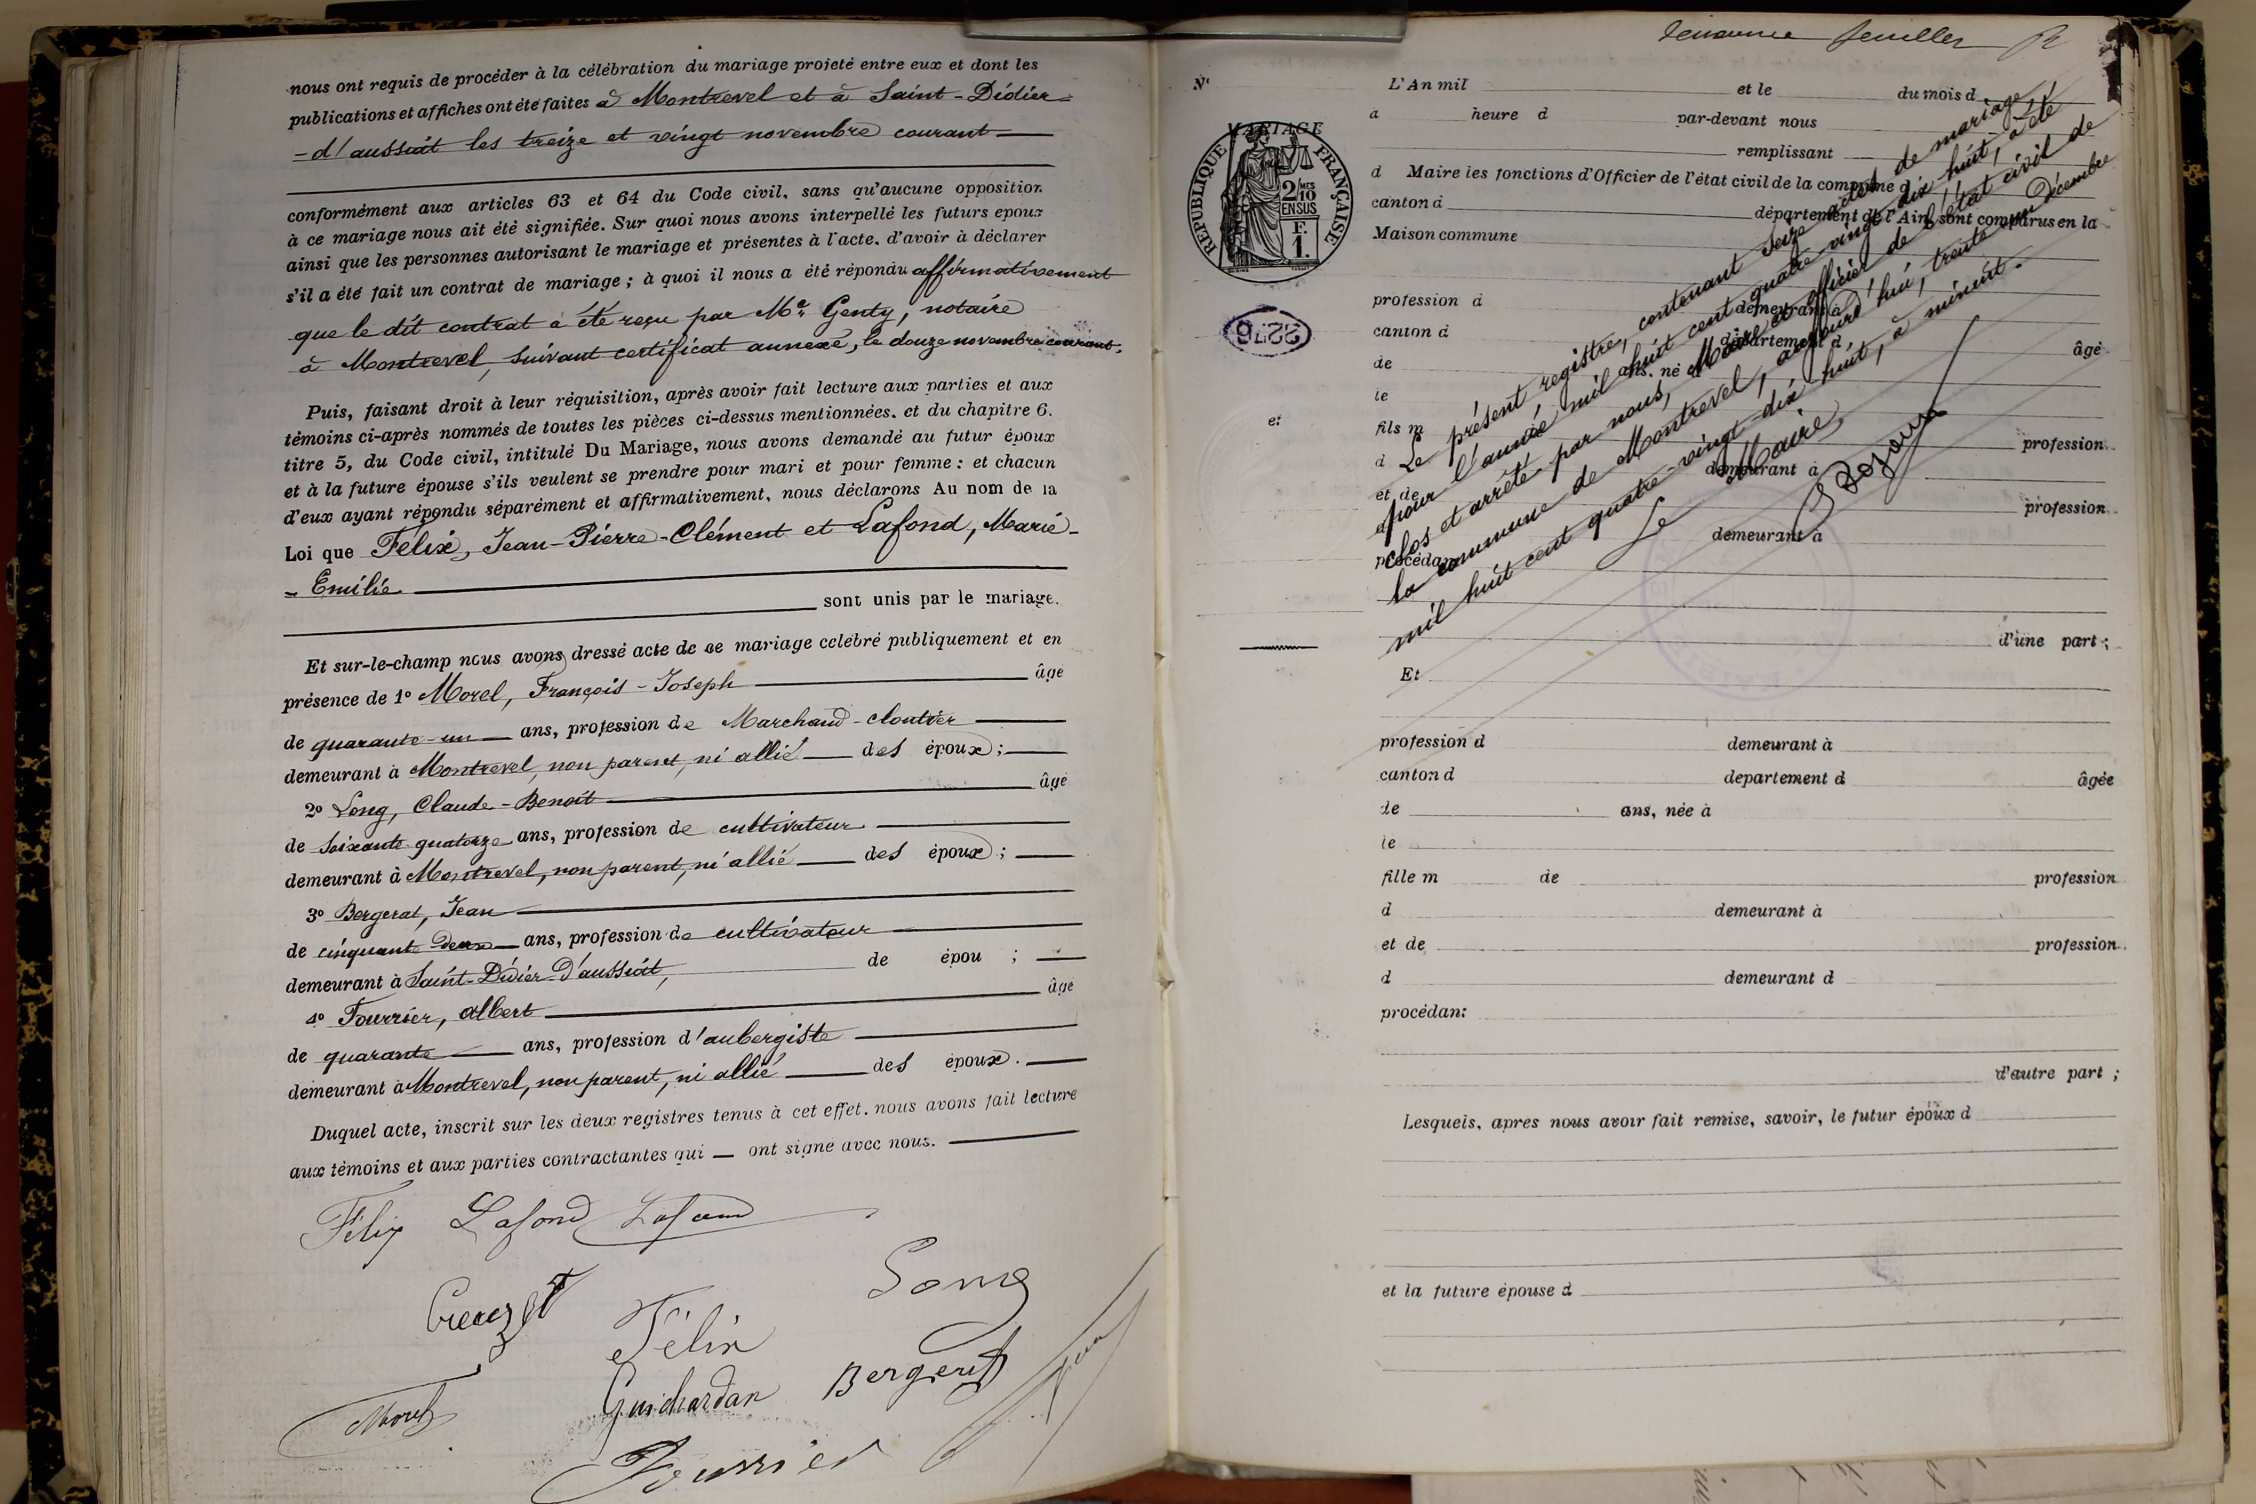 nous ont requis de procéder à la célébration du mariage projeté entre eux et dont les
publications et affiches ont été faites à Montrevel et à Saint-Didier-
-d'aussiat les treize et vingt novembre courant
conformément aux articles 63 et 64 du Code civil, sans qu'aucune opposition
à ce mariage nous ait été signifiée. Sur quoi nous avons interpellé les futurs époux
ainsi que les personnes autorisant le mariage et présentes à l'acte, d'avoir à déclarer
s'il a été fait un contrat de mariage ; à quoi il nous a été répondu affirmativement
que le dit contrat a été reçu par Me Genty, notaire
à Montrevel, suivant certificat annexé, le douze novembre courant.
Puis, faisant droit à leur réquisition, après avoir fait lecture aux parties et aux
témoins ci-après nommés de toutes les pièces ci-dessus mentionnées, et du chapitre 6.
titre 5, du Code civil, intitulé Du Mariage, nous avons demandé au futur époux
et à la future épouse s'ils veulent se prendre pour mari et pour femme : et chacun
d'eux ayant répondu séparément et affirmativement, nous déclarons Au nom de la
Loi que Félix, Jean-Pierre-Clément et Lafond, Marie-
- Emilie
sont unis par le mariage.
Et sur-le-champ nous avons dressé acte de ce mariage célébré publiquement et en
présence de 1o Morel, François-Joseph âgé
de quarante-un ans, profession de Marchand-cloutier
demeurant à Montrevel, non parent, ni allié des époux ;
2o Long, Claude-Benoit âgé
de soixante quatorze ans, profession de cultivateur
demeurant à Montrevel, non parent, ni allié des époux ;
3o Bergerat, Jean
de cinquante deux ans, profession de cultivateur
demeurant à Saint-Didier-D'aussiat, de épou ;
4o Fourrier, albert âgé
de quarante ans, profession d'aubergiste
demeurant à Montrevel, non parent, ni allié des époux.
Duquel acte, inscrit sur les deux registres tenus à cet effet, nous avons fait lecture
aux témoins et aux parties contractantes qui ont signé avec nous.
Félix Lafond Lafond
Creuzet Félix Long
Morel Guichardan Bergerat
Fourrier
feuillet
No
L'An mil et le du mois d
a heure d par-devant nous
remplissant
d Maire les fonctions d'Officier de l'état civil de la commune d
canton d département de l'Ain, sont comparus en la
Maison commune
MARIAGE
RÉPUBLIQUE FRANÇAISE
2/MES 10 EN SUS
F. 1.
2276
profession d demeurant à
canton d département d âgé
de ans, né à
le
et
fils m
d profession
et de demeurant à
d profession
procédan demeurant à
Le présent registre, contenant seize actes de mariage,
pour l'année mil huit cent quatre-vingt-dix huit, a été
clos et arrêté par nous, Maire et officier de l'état civil de
la commune de Montrevel, aujourd'hui, trente un Décembre
mil huit cent quatre-vingt dix huit, à minuit.
Le Maire,
d'une part ;
Et
profession d demeurant à
canton d departement d âgée
de ans, née à
le
fille m de profession
d demeurant à
et de profession
d demeurant d
procédan
d'autre part ;
Lesquels, apres nous avoir fait remise, savoir, le futur époux d
et la future épouse d